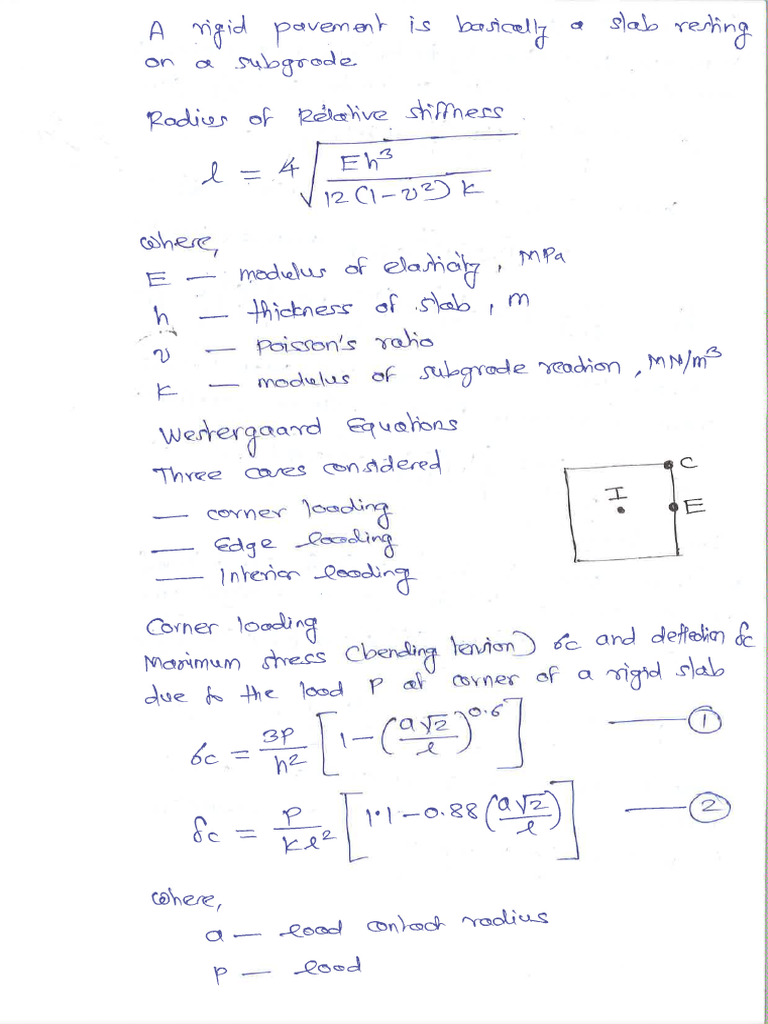 A rigid pavement is basically a slab resting
on a subgrade
Radius of Relative stiffness
l = 4√(Eh³ / 12(1-ν²)k)
where,
E — modulus of elasticity, MPa
h — thickness of slab, m
ν — Poisson's ratio
K — modulus of subgrade reaction, MN/m³
Westergaard Equations
Three cases considered
— corner loading
— Edge loading
— Interior loading
C
I
E
Corner loading
Maximum stress (bending tension) σc and deflection δc
due to the load P at corner of a rigid slab
σc = 3P/h² [1-(a√2/l)^0.6] — ①
δc = P/kl² [1.1-0.88(a√2/l)] — ②
where,
a — load contact radius
P — load